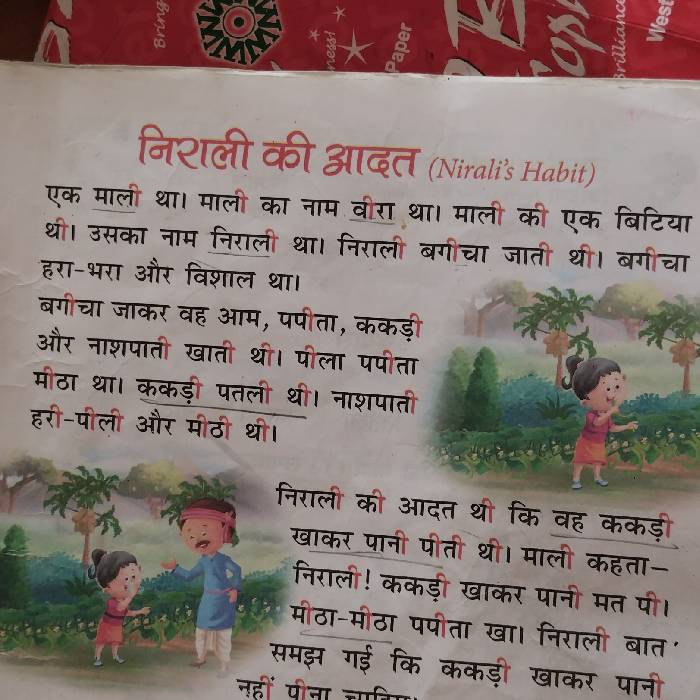 Bring
ness!
Paper
Brilliance
West
निराली की आदत (Nirali's Habit)
एक माली था। माली का नाम वीरा था। माली की एक बिटिया
थी। उसका नाम निराली था। निराली बगीचा जाती थी। बगीचा
हरा-भरा और विशाल था।
बगीचा जाकर वह आम, पपीता, ककड़ी
और नाशपाती खाती थी। पीला पपीता
मीठा था। ककड़ी पतली थी। नाशपाती
हरी-पीली और मीठी थी।
निराली की आदत थी कि वह ककड़ी
खाकर पानी पीती थी। माली कहता–
निराली! ककड़ी खाकर पानी मत पी।
मीठा-मीठा पपीता खा। निराली बात
समझ गई कि ककड़ी खाकर पानी
नहीं पीना चाहिए।